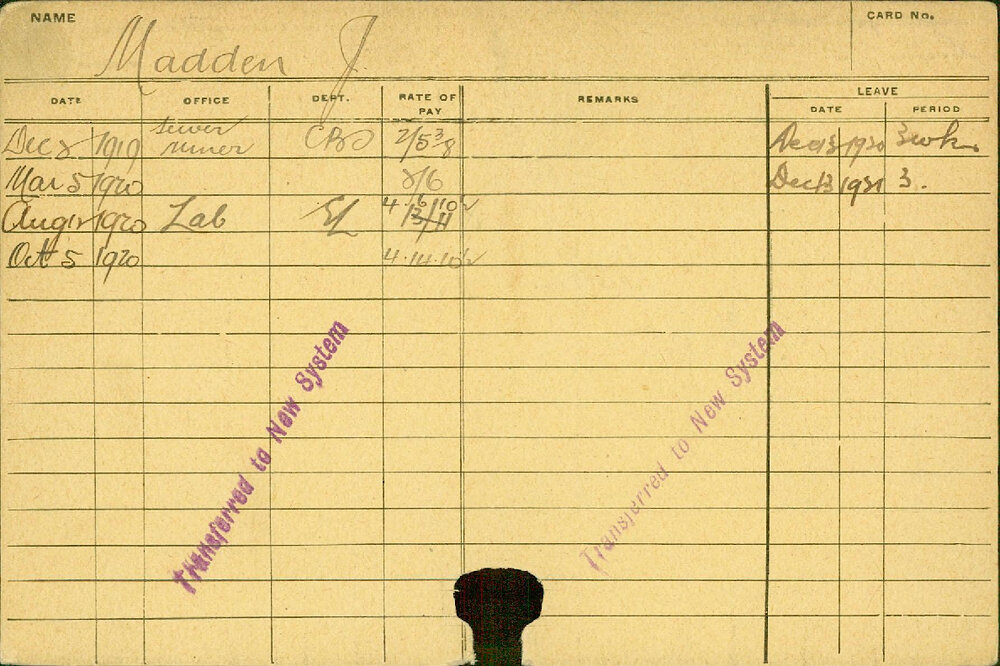 NAME
Madden J.
CARD No.
DATE OFFICE DEPT. RATE OF PAY REMARKS LEAVE
DATE PERIOD
Dec 8 1919 Sewer miner 2/5 3/8 1920 3 wk.
Mar 5 1920 2/6 Dec 13 1921 3.
Aug 12 1920 Lab EL 4
Oct 5 1920 4.14.10
Transferred to New System
Transferred to New System